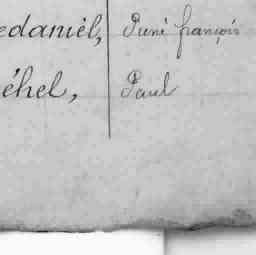 edaniël, Puné françois
éhel, Paul